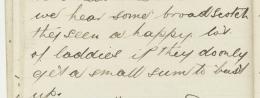 we hear some broad scotch
they seen a happy lot
of laddies if they do only
get a small sum to bust
up.